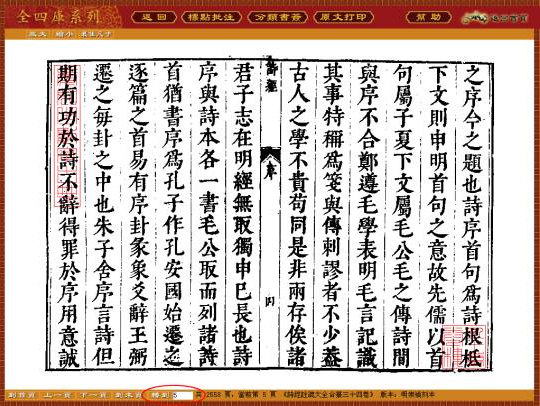 全四庫系列
返回 標點批注 分類書簽 原文打印 幫助 返回首頁
放大 縮小 最佳尺寸
之序今之題也詩序首句爲詩根柢
下文則申明首句之意故先儒以首
句屬子夏下文屬毛公毛之傳詩間
與序不合鄭遵毛學表明毛言記識
其事特稱爲箋與傳刺謬者不少蓋
古人之學不貴苟同是非兩存俟諸
詩經 序 四
君子志在明經無取獨申已長也詩
序與詩本各一書毛公取而列諸詩
首猶書序爲孔子作孔安國始遷之
逐篇之首易有序卦彖象爻辭王弼
遷之每卦之中也朱子舍序言詩但
期有功於詩不辭得罪於序用意誠
到首頁 上一頁 下一頁 到末頁 轉到 5 頁 2558 頁，當前第 5 頁 《詩經註疏大全合纂三十四卷》 版本：明崇禎刻本